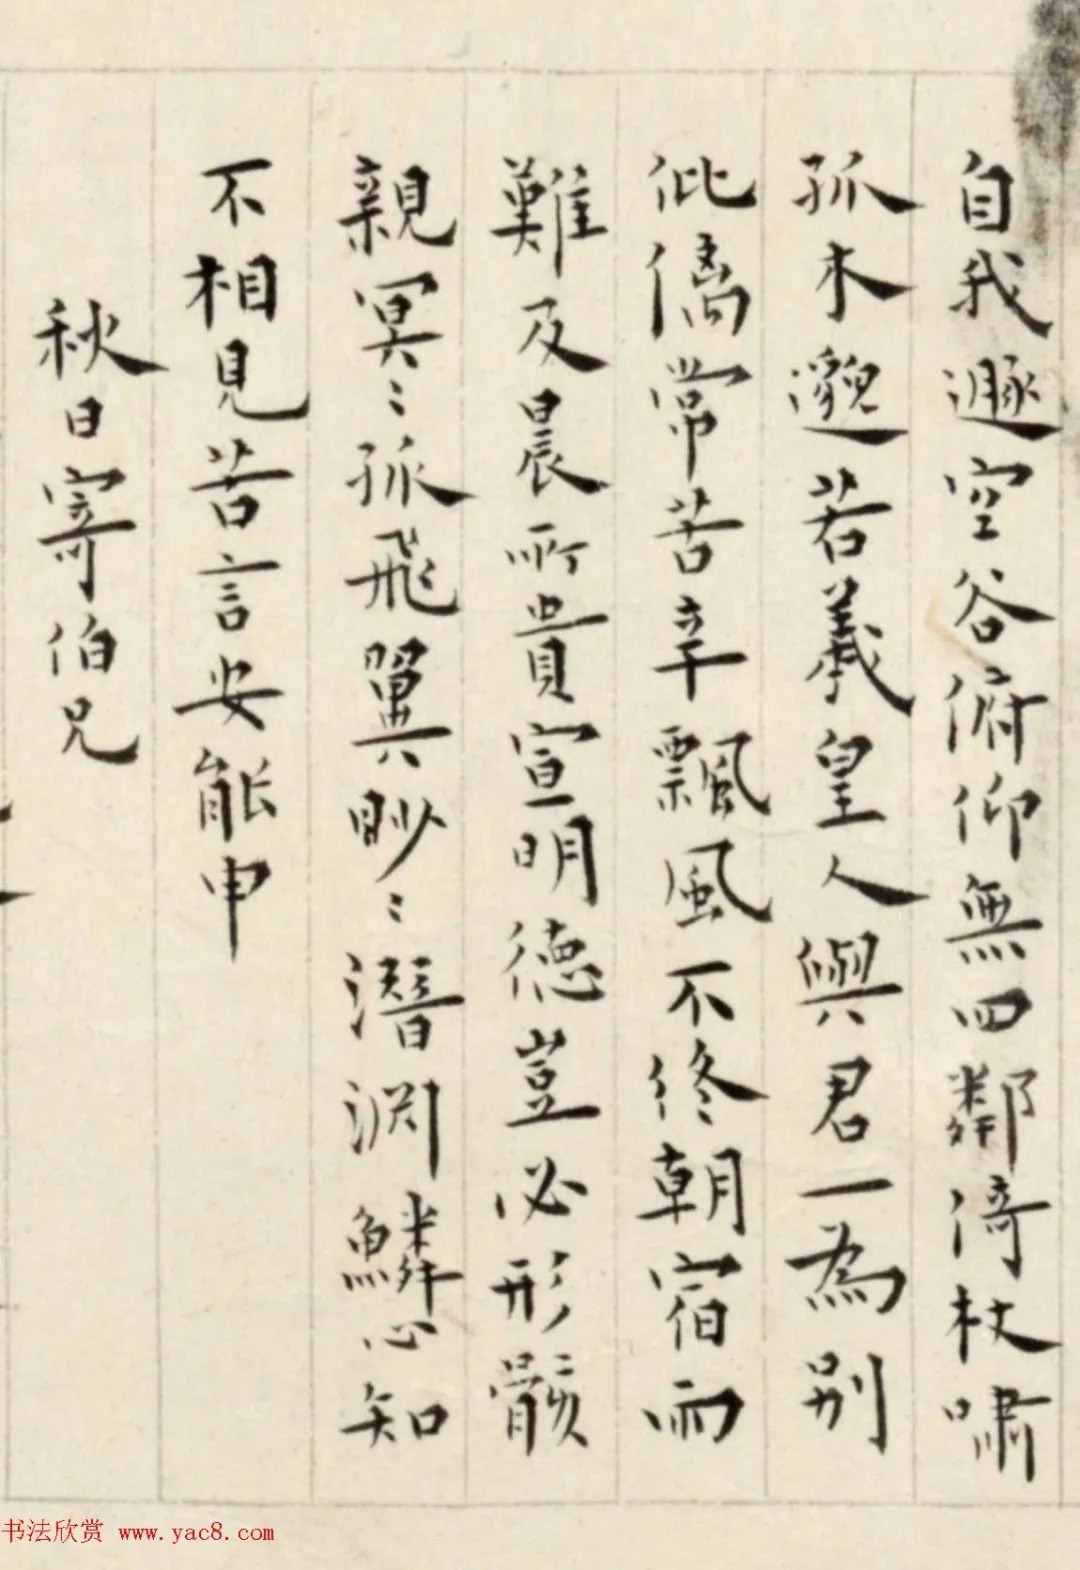 自我遯空谷俯仰無四鄰倚杖嘯
孤木邈若羲皇人與君一為別
仳僑常苦辛飄風不終朝宿而
難及晨所貴宣明德豈必形骸
親冥〻孤飛翼眇〻潛淵鱗心知
不相見苦言安能申
秋日寄伯兄
书法欣赏 www.yac8.com